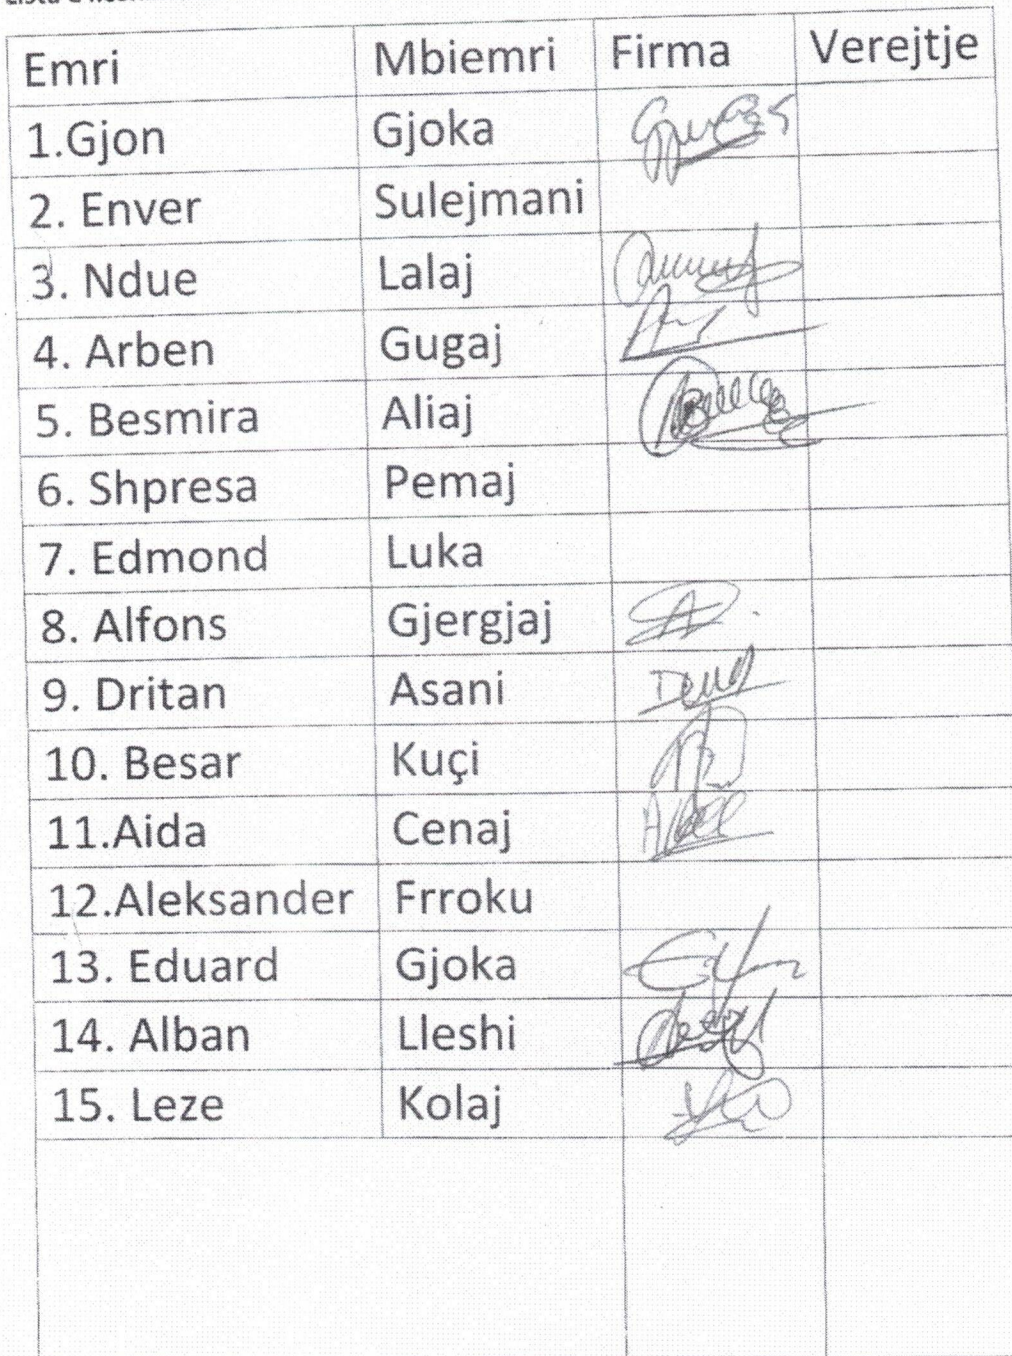 Emri Mbiemri Firma Verejtje
1.Gjon Gjoka
2. Enver Sulejmani
3. Ndue Lalaj
4. Arben Gugaj
5. Besmira Aliaj
6. Shpresa Pemaj
7. Edmond Luka
8. Alfons Gjergjaj
9. Dritan Asani
10. Besar Kuçi
11.Aida Cenaj
12.Aleksander Frroku
13. Eduard Gjoka
14. Alban Lleshi
15. Leze Kolaj